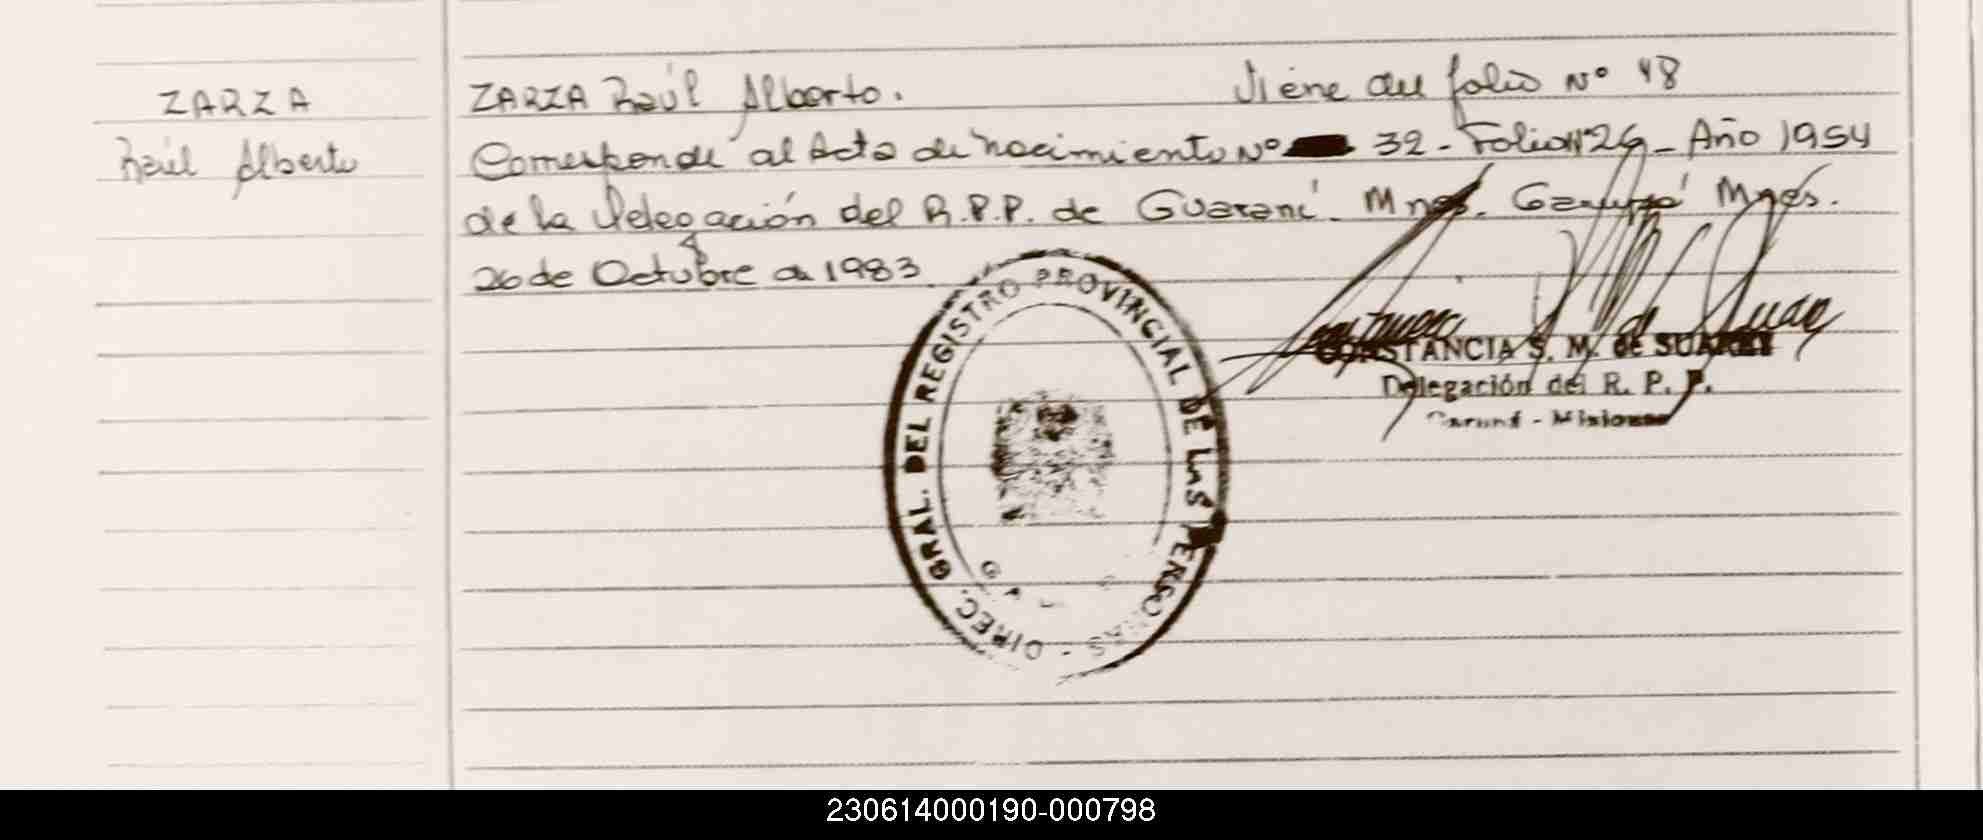 ZARZA
Raúl Alberto
ZARZA Raúl Alberto. Viene del folio Nº 48
Corresponde al Acta de nacimiento Nº 32 - Folio Nº 26 - Año 1954
de la Delegación del R.P.P. de Guaraní. Mnes. Mnes.
26 de Octubre de 1983
DIREC. GRAL. DEL REGISTRO PROVINCIAL DE LAS PERSONAS -
CONSTANCIA S. M. de SUAREZ
Delegación del R. P. P.
- Misiones
230614000190-000798